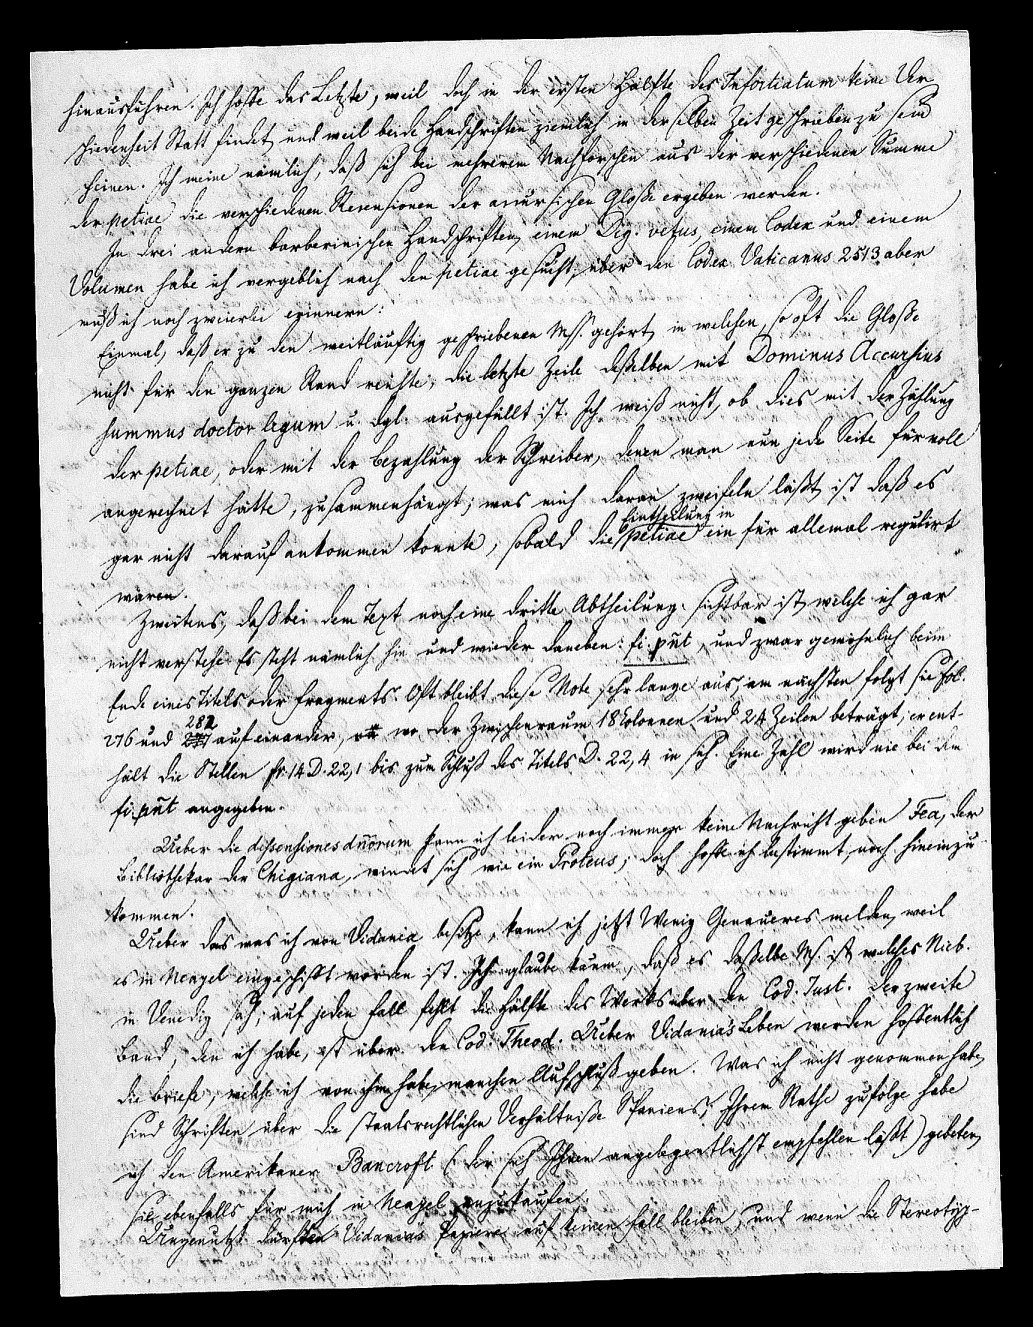 hinausführen. Ich hoffe das Letzte, weil doch in der ersten Hälfte des Infortiatum keine Ver-
schiedenheit Statt findet und weil beide Handschriften ziemlich in derselben Zeit geschrieben zu sein
scheinen. Ich meine nämlich, daß sich bei mehrerem Nachforschen aus der verschiedenen Summe
der petiae die verschiedenen Recensionen der accursischen Gloße ergeben werden.
In drei andern barberinischen Handschriften, einem Dig. vetus, einem Codex und einem
Volumen habe ich vergeblich nach den petiae gesucht, über den Codex Vaticanus 2513 aber
muß ich noch zweierlei erinnern:
Einmal, daß er zu den weitläuftig geschriebenen Mss. gehört, in welchen, so oft die Gloße
nicht für den ganzen Rand reichte, die letzte Zeile deßelben mit Dominus Accursius
summus doctor legum u. dgl. ausgefüllt ist. Ich weiß nicht, ob dies mit der Zählung
der petiae, oder mit der Bezahlung der Schreiber, denen man nun jede Seite für voll
angerechnet hätte, zusammenhängt; was mich daran zweifeln läßt, ist daß es
gar nicht darauf ankommen konnte, sobald die Eintheilung in petiae ein für allemal regulirt
waren.
Zweitens, daß bei dem Text noch eine dritte Abtheilung sichtbar ist, welche ich gar
nicht verstehe. Es steht nämlich hin und wieder daneben: fi. pūt, und zwar gewöhnlich beim
Ende eines Titels oder Fragments. Oft bleibt diese Note sehr lange aus; am nächsten folgt sie fol.
276 und 282 auf einander, wo der Zwischenraum 18 Colonnen und 24 Zeilen beträgt; er ent-
hält die Stellen fr. 14 D. 22,1 bis zum Schluß des Titels D. 22,4 in sich. Eine Zahl wird nie bei dem
fi. pūt angegeben.
Ueber die dissensiones dñorum kann ich leider noch immer keine Nachricht geben. Fea, der
Bibliothekar der Chigiana, windet sich wie ein Proteus; doch hoffe ich bestimmt, noch hineinzu-
kommen.
Ueber das was ich von Vidania besitze, kann ich jetzt Wenig Genaueres melden, weil
es in Neapel eingeschifft worden ist. Ich glaube kaum, daß es daßelbe Ms. ist welches Nieb.
in Venedig sah; auf jeden Fall fehlt die Hälfte des Werks über den Cod. Just. Der zweite
Band, den ich habe, ist über den Cod. Theod. Ueber Vidania's Leben werden hoffentlich
die Briefe, welche ich von ihm habe, manchen Aufschluß geben. Was ich nicht genommen habe,
sind Schriften über die staatsrechtlichen Verhältniße Spaniens; Ihrem Rathe zufolge habe
ich den Amerikaner Bancroft (der sich Ihnen angelegentlichst empfehlen läßt) gebeten,
sie ebenfalls für mich in Neapel anzukaufen.
Ungenutzt dürfen Vidania's Papiere auf keinen Fall bleiben, und wenn die Stereotyp-